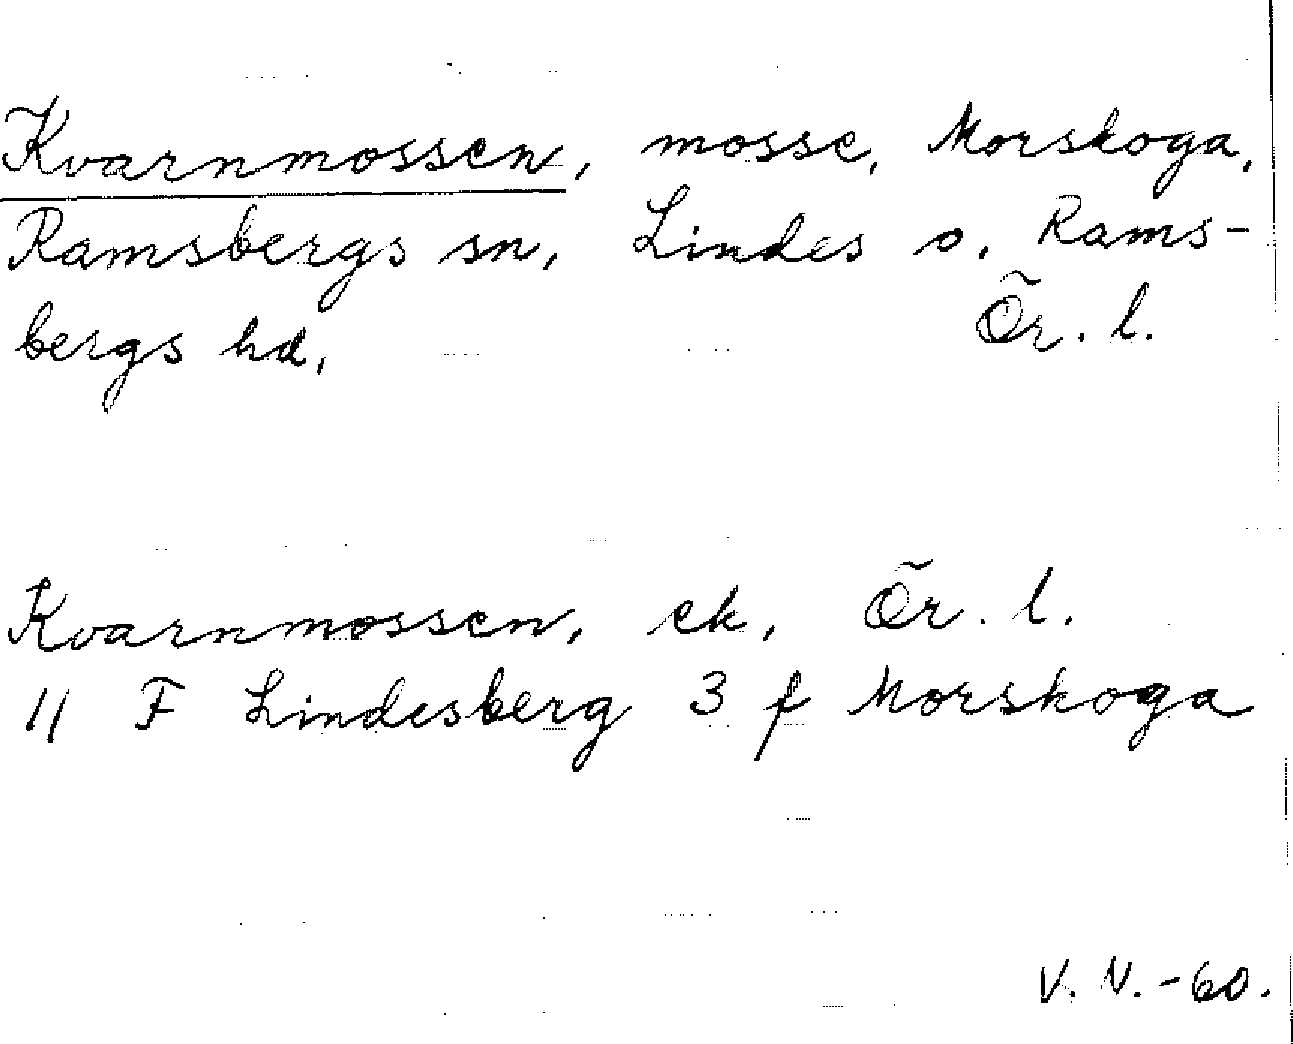 Kvarnmossen, mosse, Morskoga,
Ramsbergs sn, Lindes o. Rams-
bergs hd, Ör. l.
Kvarnmossen, ek, Ör. l.
11 F Lindesberg 3 f Morskoga
V. N. -60.